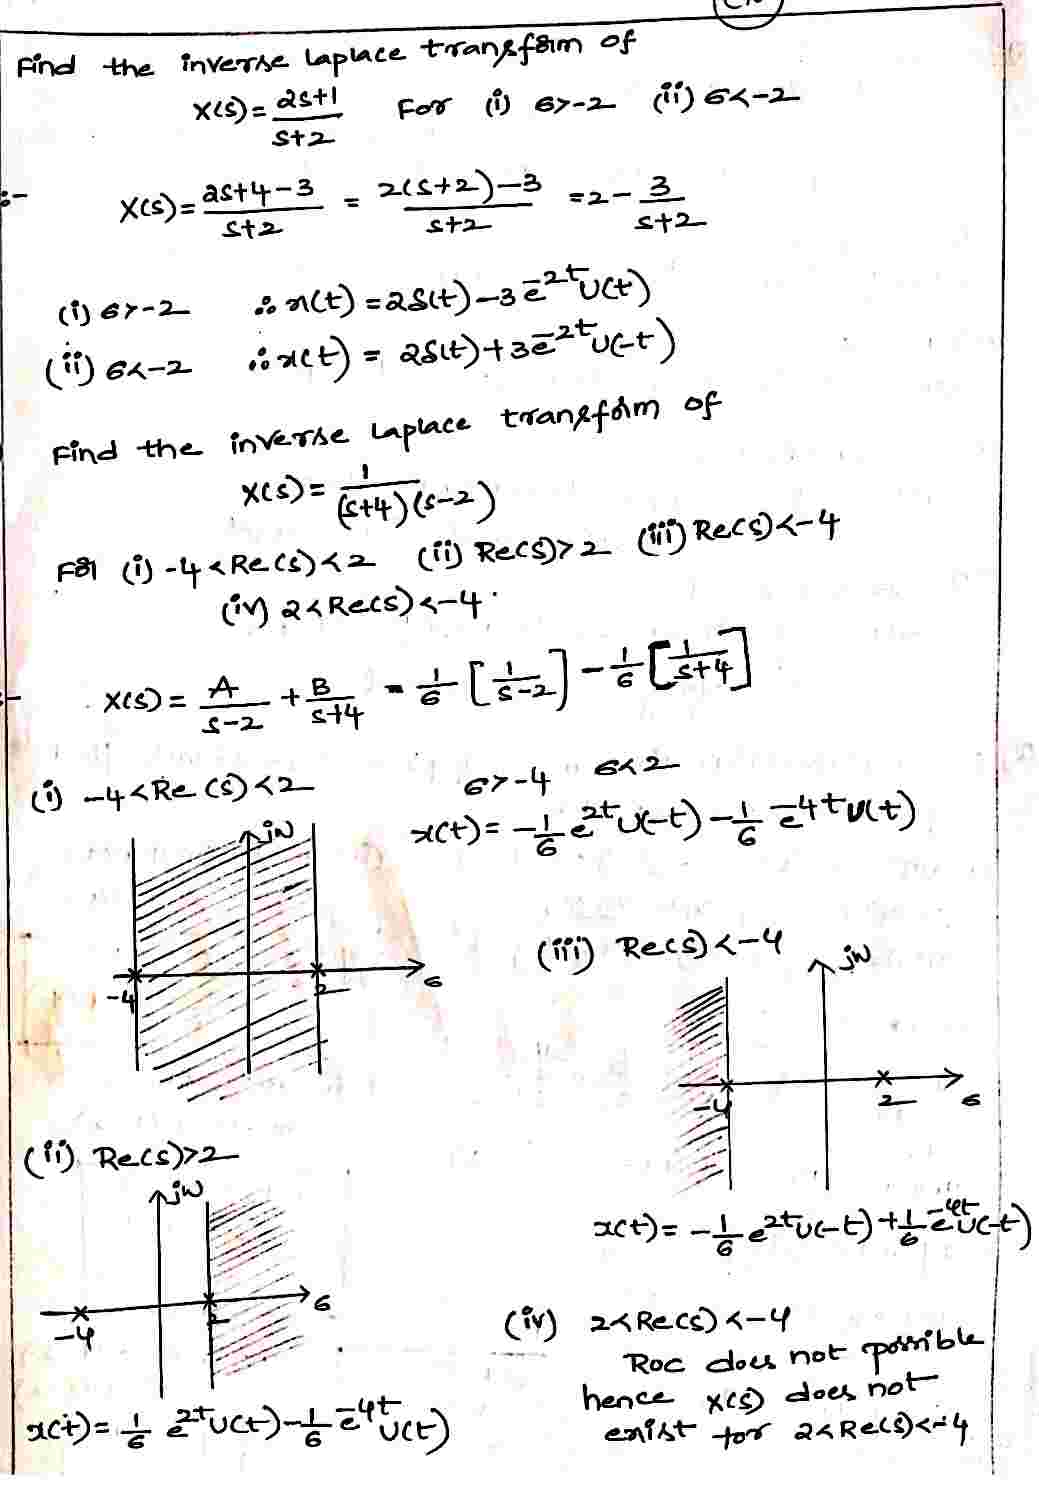 Find the inverse Laplace transform of
X(s) = 2s+1/s+2 For (i) σ>-2 (ii) σ<-2
:- X(s) = 2s+4-3/s+2 = 2(s+2)-3/s+2 = 2 - 3/s+2
(i) σ>-2 ∴ x(t) = 2δ(t) - 3e^-2t U(t)
(ii) σ<-2 ∴ x(t) = 2δ(t) + 3e^-2t U(-t)
Find the inverse Laplace transform of
X(s) = 1/(s+4)(s-2)
For (i) -4<Re(s)<2 (ii) Re(s)>2 (iii) Re(s)<-4
(iv) 2<Re(s)<-4.
:- X(s) = A/s-2 + B/s+4 = 1/6 [1/s-2] - 1/6 [1/s+4]
(i) -4<Re(s)<2 σ>-4 σ<2
x(t) = -1/6 e^2t U(-t) - 1/6 e^-4t U(t)
jω
-4 2 σ
(iii) Re(s)<-4
jω
-4 2 σ
x(t) = -1/6 e^2t U(-t) + 1/6 e^-4t U(-t)
(ii) Re(s)>2
jω
-4 2 σ
x(t) = 1/6 e^2t U(t) - 1/6 e^-4t U(t)
(iv) 2<Re(s)<-4
Roc does not possible
hence x(s) does not
exist for 2<Re(s)<-4